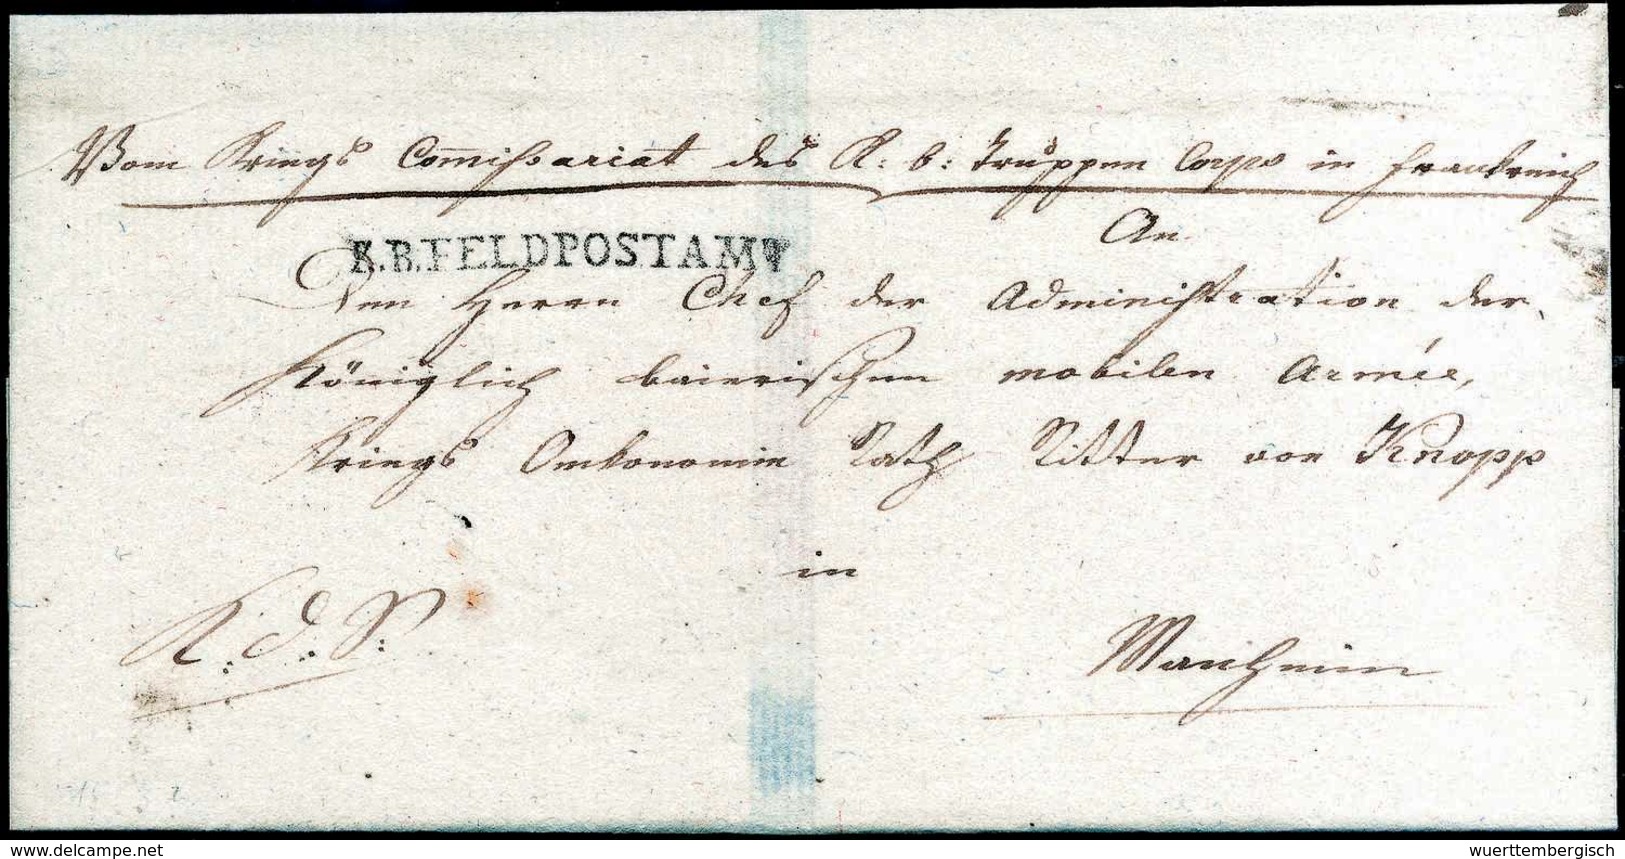 Vom Kriegs Commissariat des K: b: Truppen Corps in Frankreich
An
K.B.FELDPOSTAMT
Den Herrn Chef der Administration der
Königlich baierischen mobilen Armée,
Kriegs Oekonomie Rath Ritter von Knopp
in
K. d. S.
Manheim
www.delcampe.net
wuerttembergisch